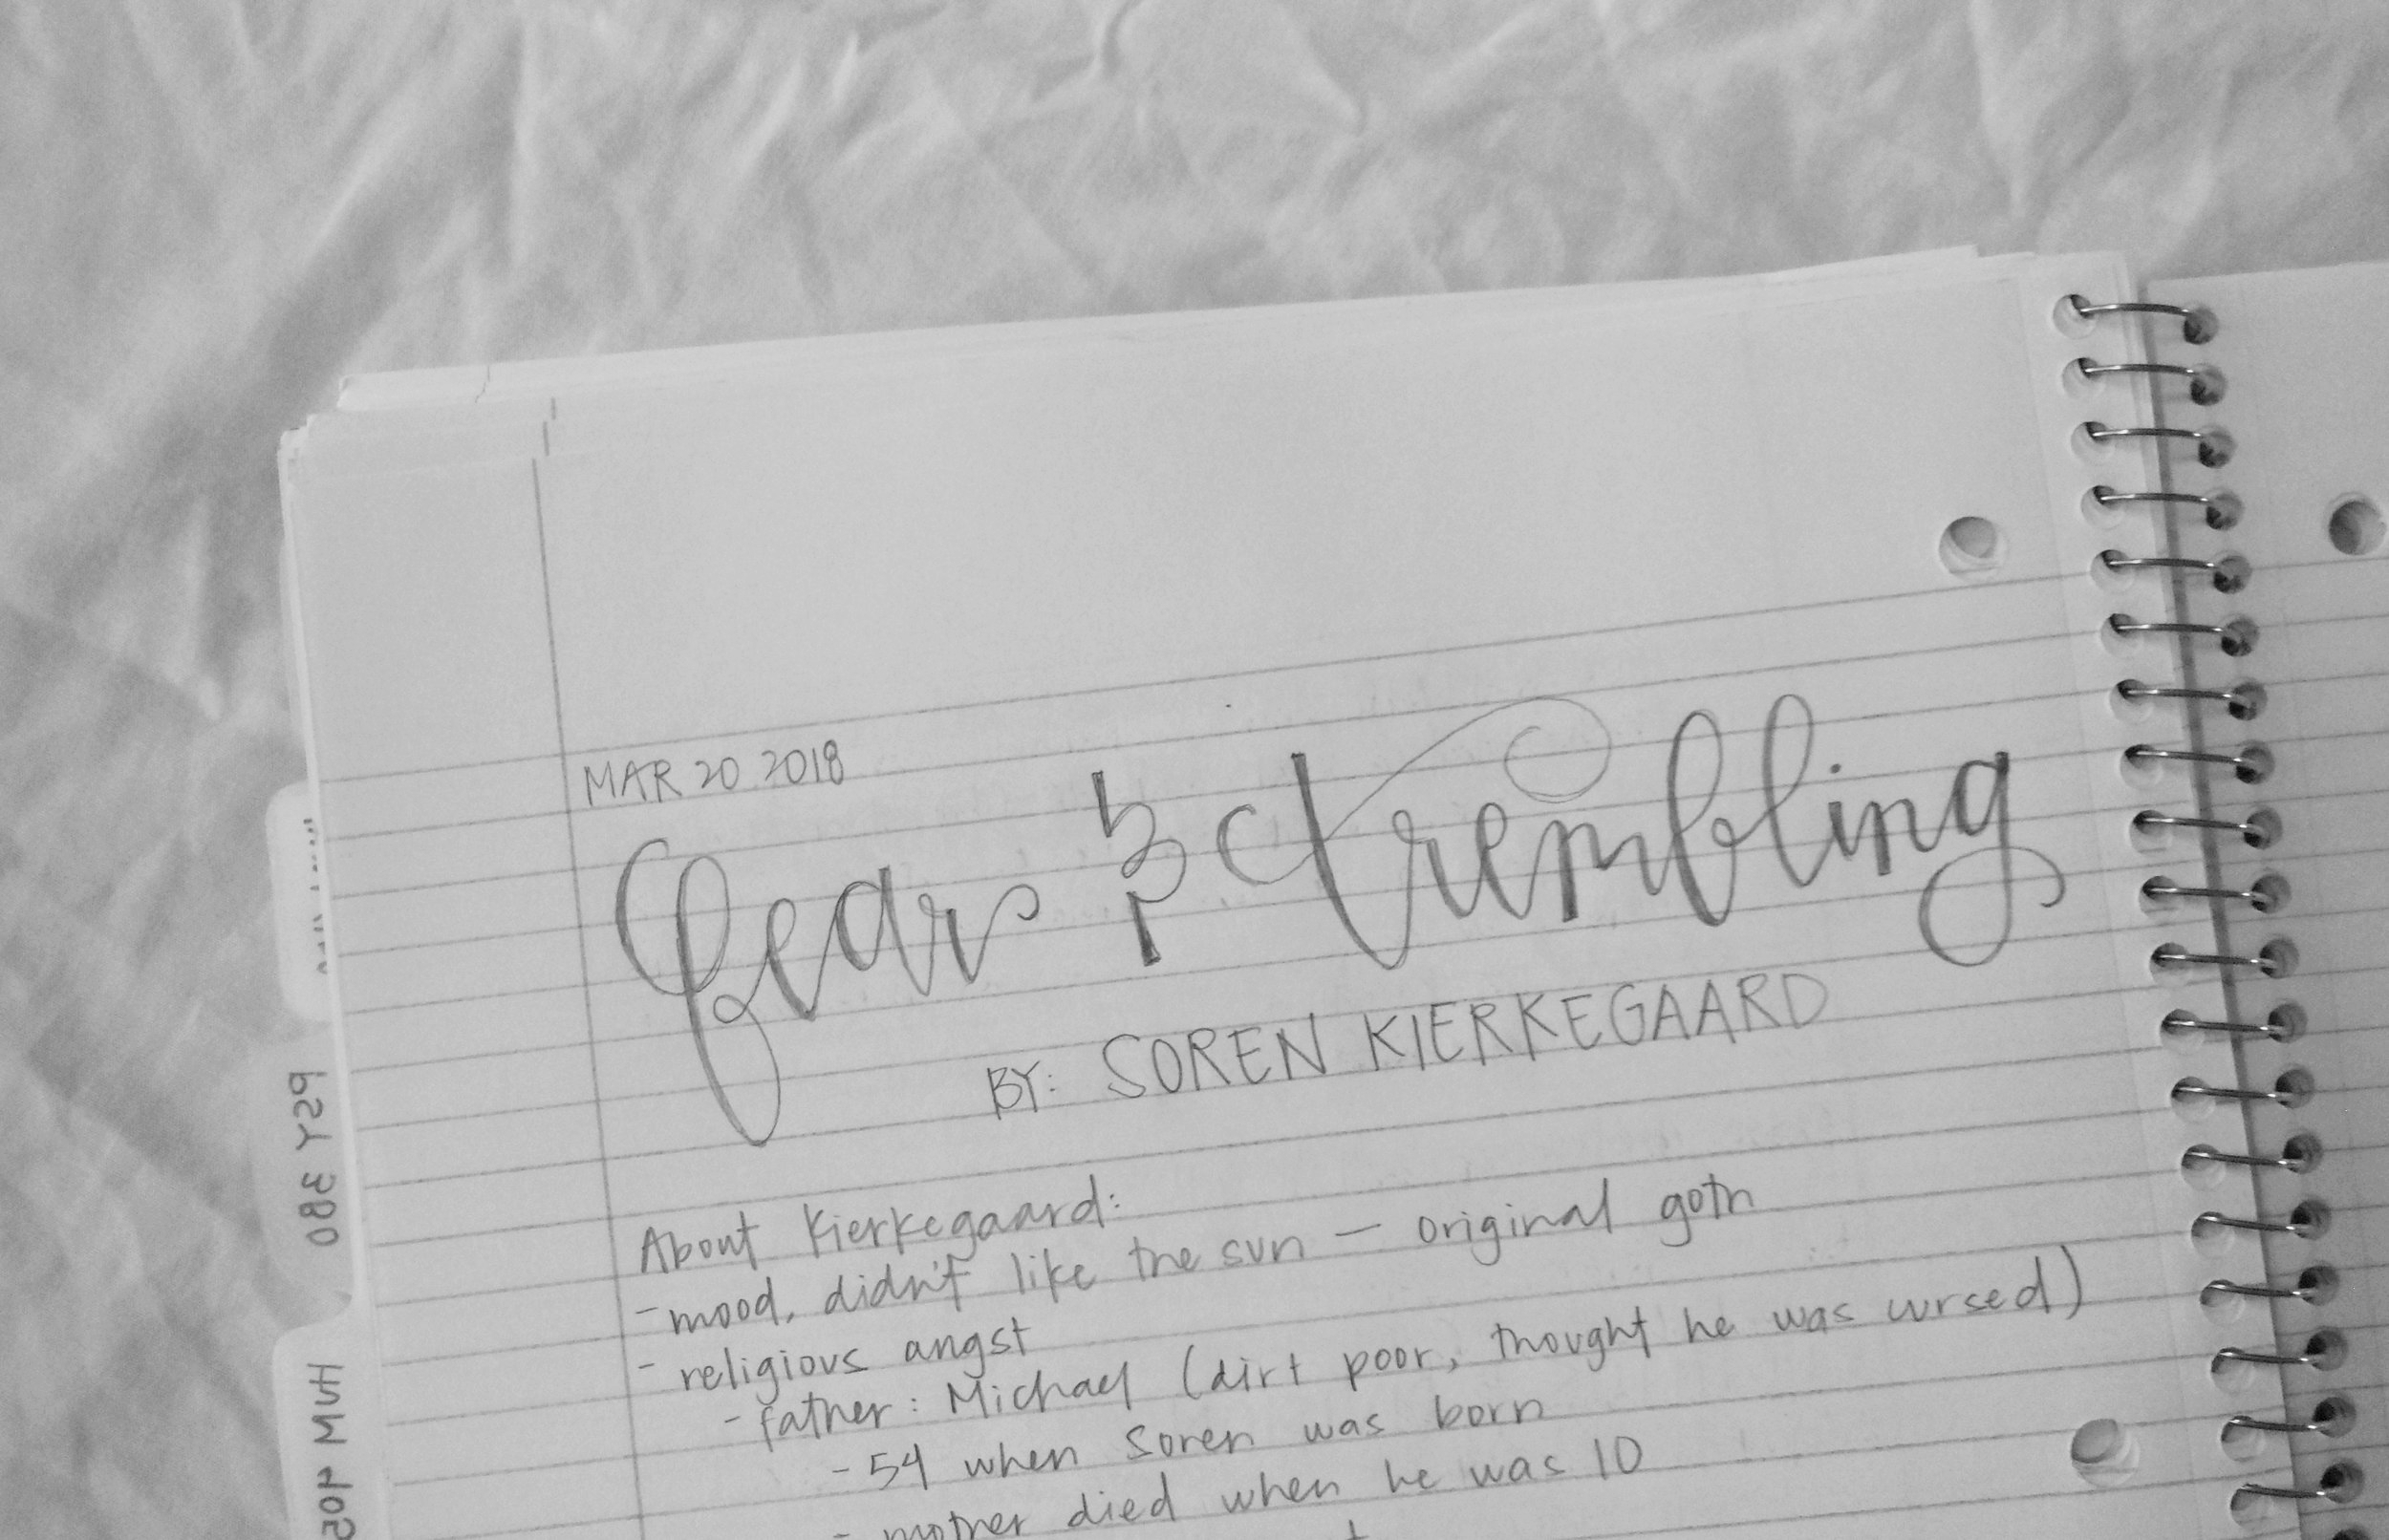 MAR 20. 2018
fear & trembling
BY: SOREN KIERKEGAARD
About Kierkegaard:
- mood, didn't like the sun — original goth
- religious angst
- father: Michael (dirt poor, thought he was cursed)
- 54 when Soren was born
- mother died when he was 10
PSY 380
HUM 405